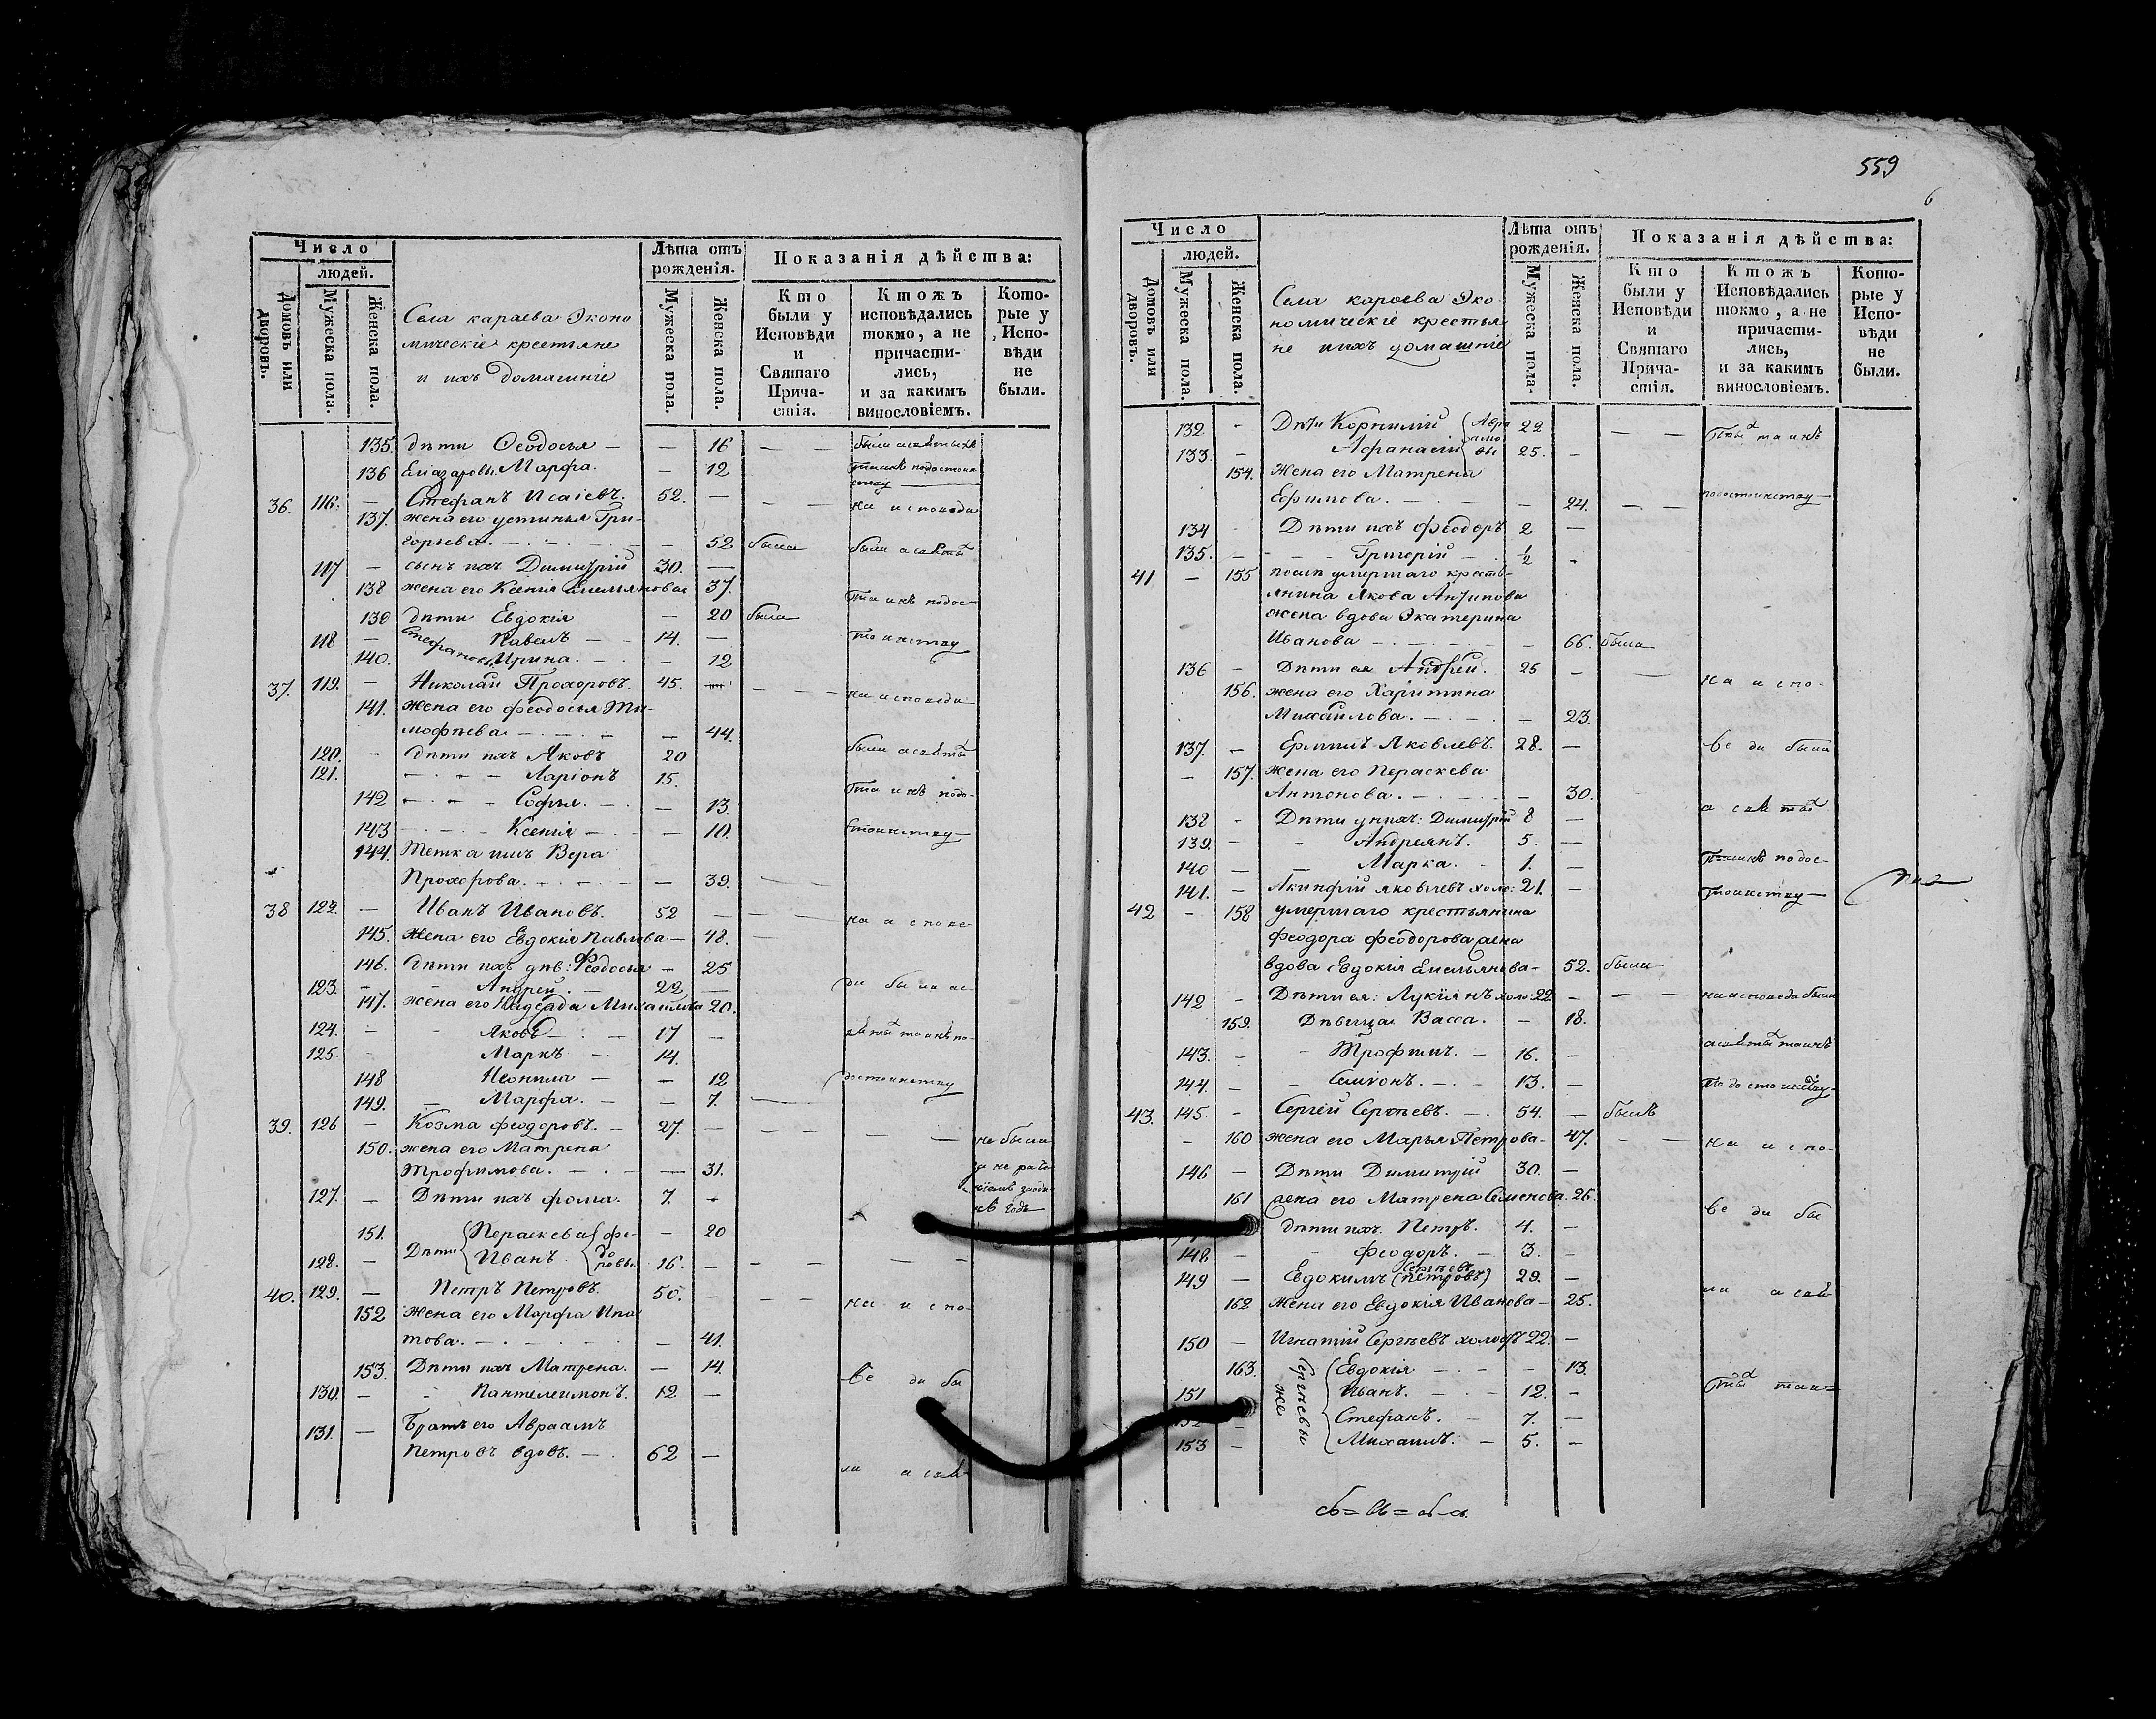 Число
людей.
Домовъ или дворовъ.
Мужеска пола.
Женска пола.
Села караева Эконо
мическiе крестьяне
и ихъ домашнiе
Лѣта отъ рожденiя.
Мужеска пола.
Женска пола.
Показанiя дѣйства:
Кто были у Исповѣди и Святаго Прича-стiя.
Ктожъ исповѣдались токмо, а не причасти-лись, и за какимъ винословiемъ.
Кото-рые у Испо-вѣди не были.
135. дѣти Ѳеодосья — — 16 — —
136 Елазаровы Марфа. — 12
36. 116. — Стефанъ Исаiевъ. 52. — — — на исповеди
137. жена его устинья Гри-
горьева. — — 52 была были а святы
117 — сынъ ихъ Димитрiй 30. —
138 жена его Ксенiя Емельянова 37.
139 дѣти Евдокiя — 20 была
118 — Стефановы Павелъ — 14. — тоинству
140. Ирина. — — 12
37. 119. — Николай Прохоровъ. 45. — — — на исповеди
141. жена его феодосья Ти-
мофѣева — — 44.
120. — дѣти ихъ Яковъ 20 были а святы
121. — Ларiонъ 15.
142 — Софья. — — 13.
143 — Ксенiя — — 10.
144. Тетка имъ Вера
Прохорова. — — 39. —
38 122. — Иванъ Ивановъ. 52 — — — на испове-
145. жена его Евдокiя Павлова — 48. —
146. дѣти ихъ дѣв: Ѳеодосья — 25
123. — Андрей. — 22 — ди были ас-
147. жена его Надежда Михаилова 20.
124. — Яковъ — 17 —
125. — Маркъ — 14.
148 Неонила — — 12 достоинству
149. — Марфа. — — 7. —
39. 126 — Козма феодоровъ. — 27. — — — — не были
150. жена его Матрена
Трофимова. — — 31.
127. — Дѣти ихъ фома. 7. —
151. Дѣти Пераскева фе- — 20
128. — Иванъ доровы. 16. — — — — —
40. 129. — Петръ Петровъ. 50. — — — на испо-
152 жена его Марфа Ипа
това. — — 41.
153. Дѣти ихъ Матрена. — 14.
130. — Пантелеимонъ. 12 — ве ди бы
131. — Братъ его Авраамъ
Петровъ вдовъ. — 62 — ли а свя-
559
6
Число
людей.
Домовъ или дворовъ.
Мужеска пола.
Женска пола.
Села караева Эко-
номическiе крестья
не ихъ домашнiе
Лѣта отъ рожденiя.
Мужеска пола.
Женска пола.
Показанiя дѣйства:
Кто были у Исповѣди и Святаго Прича-стiя.
Ктожъ Исповѣдались токмо, а не причасти-лись, и за какимъ винословiемъ.
Кото-рые у Испо-вѣди не были.
132. — Дѣти Корнилiй Авра 22 — —
133. — Афанасiй амовы 25. —
154. Жена его Матрена
Ефимова. — — 24. — —
134 — Дѣти ихъ феодоръ 2 —
135. — — Григорiй — ½ —
41 — 155 послѣ умершаго кресть-
янина Якова Антипова
жена вдова Екатерина
Иванова — — 66. была
136 — Дѣти ея Андрей. 25 — — на испо-
156. жена его Харитина
Михаилова. — — 23.
137. — Ермилъ Яковлевъ. 28. — ве ди были
— 157. жена его Пераскева
Антонова. — — 30.
138 — Дѣти у нихъ: Димитрiй 8 —
139. — — Андреянъ. 5. —
140 — — Марка. — 1. —
141. — Акинфiй яковлевъ холо: 21. — тоинству —
42 — 158 умершаго крестьянина
феодора феодорова жена
вдова Евдокiя Емельянова — 52. была
142 — Дѣти ея: Лукiянъ холо: 22 — — — на исповеди были
159. Дѣвица Васса. — 18.
143. — — Трофимъ. — 16. —
144. — — Симiонъ. — 13. —
43. 145. — Сергѣй Сергѣевъ. — 54. — былъ
— 160 жена его Марья Петрова — 47. — — на испо-
146 — Дѣти Димитрiй 30. —
161 жена его Матрена Семенова. 26.
дѣти ихъ Петръ. 4. — ве ди бы
148. — — феодоръ. — 3. —
149 — Евдокимъ (петровъ) Сергѣевъ 29. —
162 жена его Евдокiя Иванова — 25. ли а свя
150 — Игнатiй Сергѣевъ холостъ 22. —
163. Сергѣевы же Евдокiя — — 13.
151 Иванъ. — 12. —
152 — Стефанъ. — 7. —
153 — Михаилъ. — 5. —